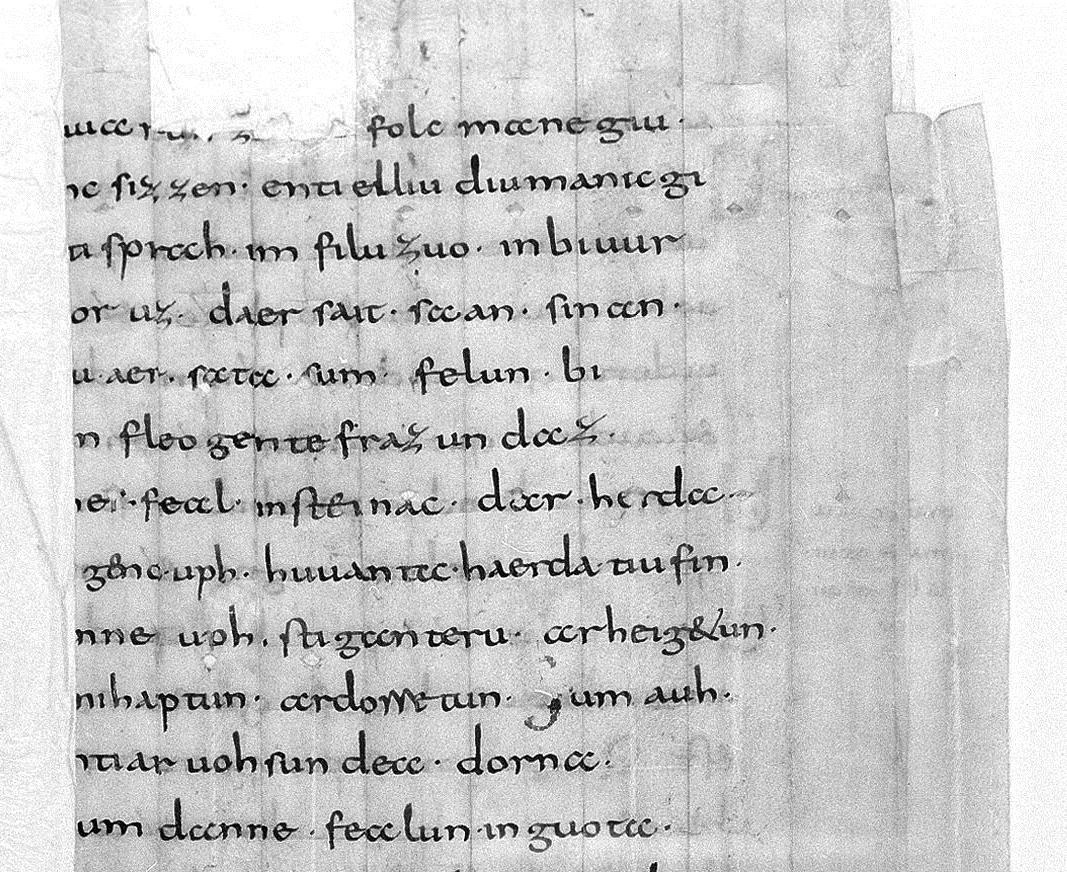 folc manegiu·
sizzen· enti elliu diu manic gi
ta sprah· im filu zuo· in biuuur
or uz· daer sait· saan· sinan·
u aer· sata· sum felun· bi
n fleogente frazun daz·
feal· in steinac· dar· herda·
uph· huuanta· haerda tiufin·
nne uph· stiganteru· arheig&un·
nihaptun· ardorretun· Sum auh·
ntiar uohsun dea· dorna·
um danne· fealun in guota·